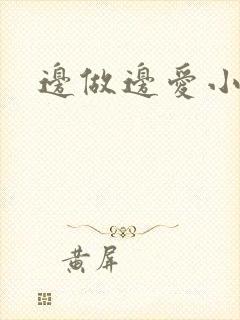 邊做邊愛小
黄屏